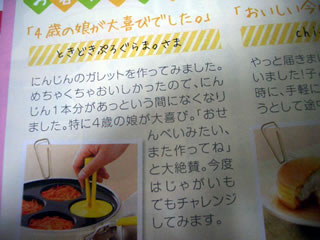 「4歳の娘が大喜びでした。」
ときどきぷろぐらま。さま
にんじんのガレットを作ってみました。
めちゃくちゃおいしかったので、にん
じん1本分があっという間になくなり
ました。特に4歳の娘が大喜び。「おせ
んべいみたい、
また作ってね」
と大絶賛。今度
はじゃがいも
でもチャレンジ
してみます。
「おいしい今
chi
やっと届きま
いました!子
時に、手軽に
うとして途中